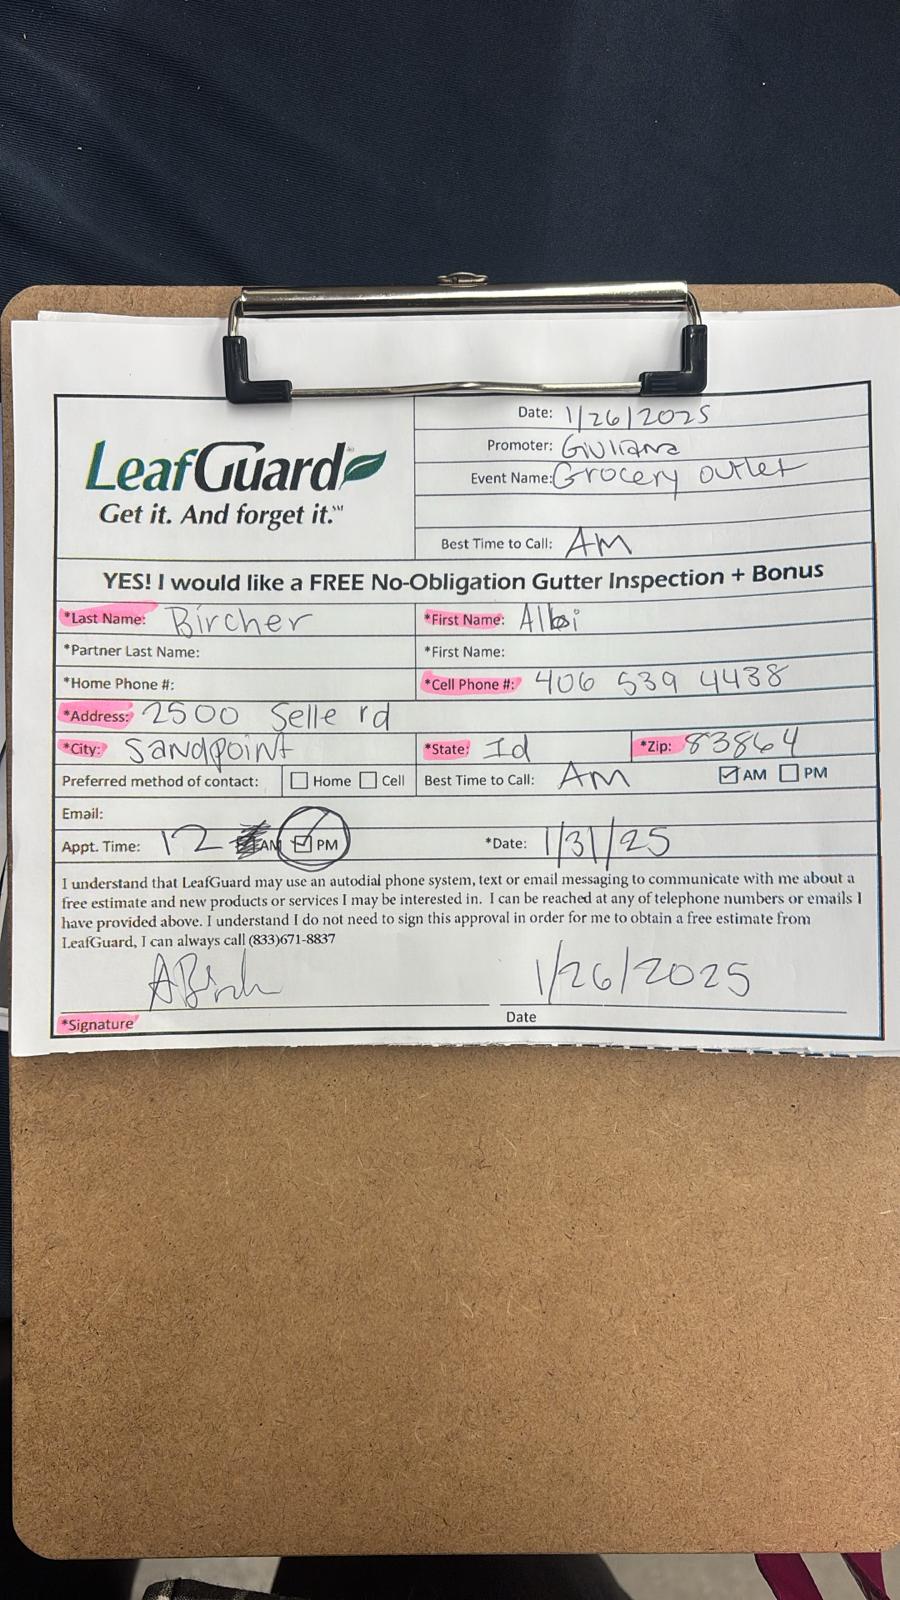 Date: 1/26/2025
Promoter: Giuliana
Event Name: Grocery outlet
LeafGuard
Get it. And forget it.℠
Best Time to Call: AM
YES! I would like a FREE No-Obligation Gutter Inspection + Bonus
*Last Name: Bircher *First Name:
*Partner Last Name: *First Name:
*Home Phone #: *Cell Phone #: 406 539 4438
*Address: 2500 Selle rd
*City: Sandpoint *State: Id *Zip: 83864
Preferred method of contact: Home Cell Best Time to Call: AM AM PM
Email:
Appt. Time: 12 AM PM *Date: 1/31/25
I understand that LeafGuard may use an autodial phone system, text or email messaging to communicate with me about a
free estimate and new products or services I may be interested in. I can be reached at any of telephone numbers or emails I
have provided above. I understand I do not need to sign this approval in order for me to obtain a free estimate from
LeafGuard, I can always call (833)671-8837
1/26/2025
*Signature Date